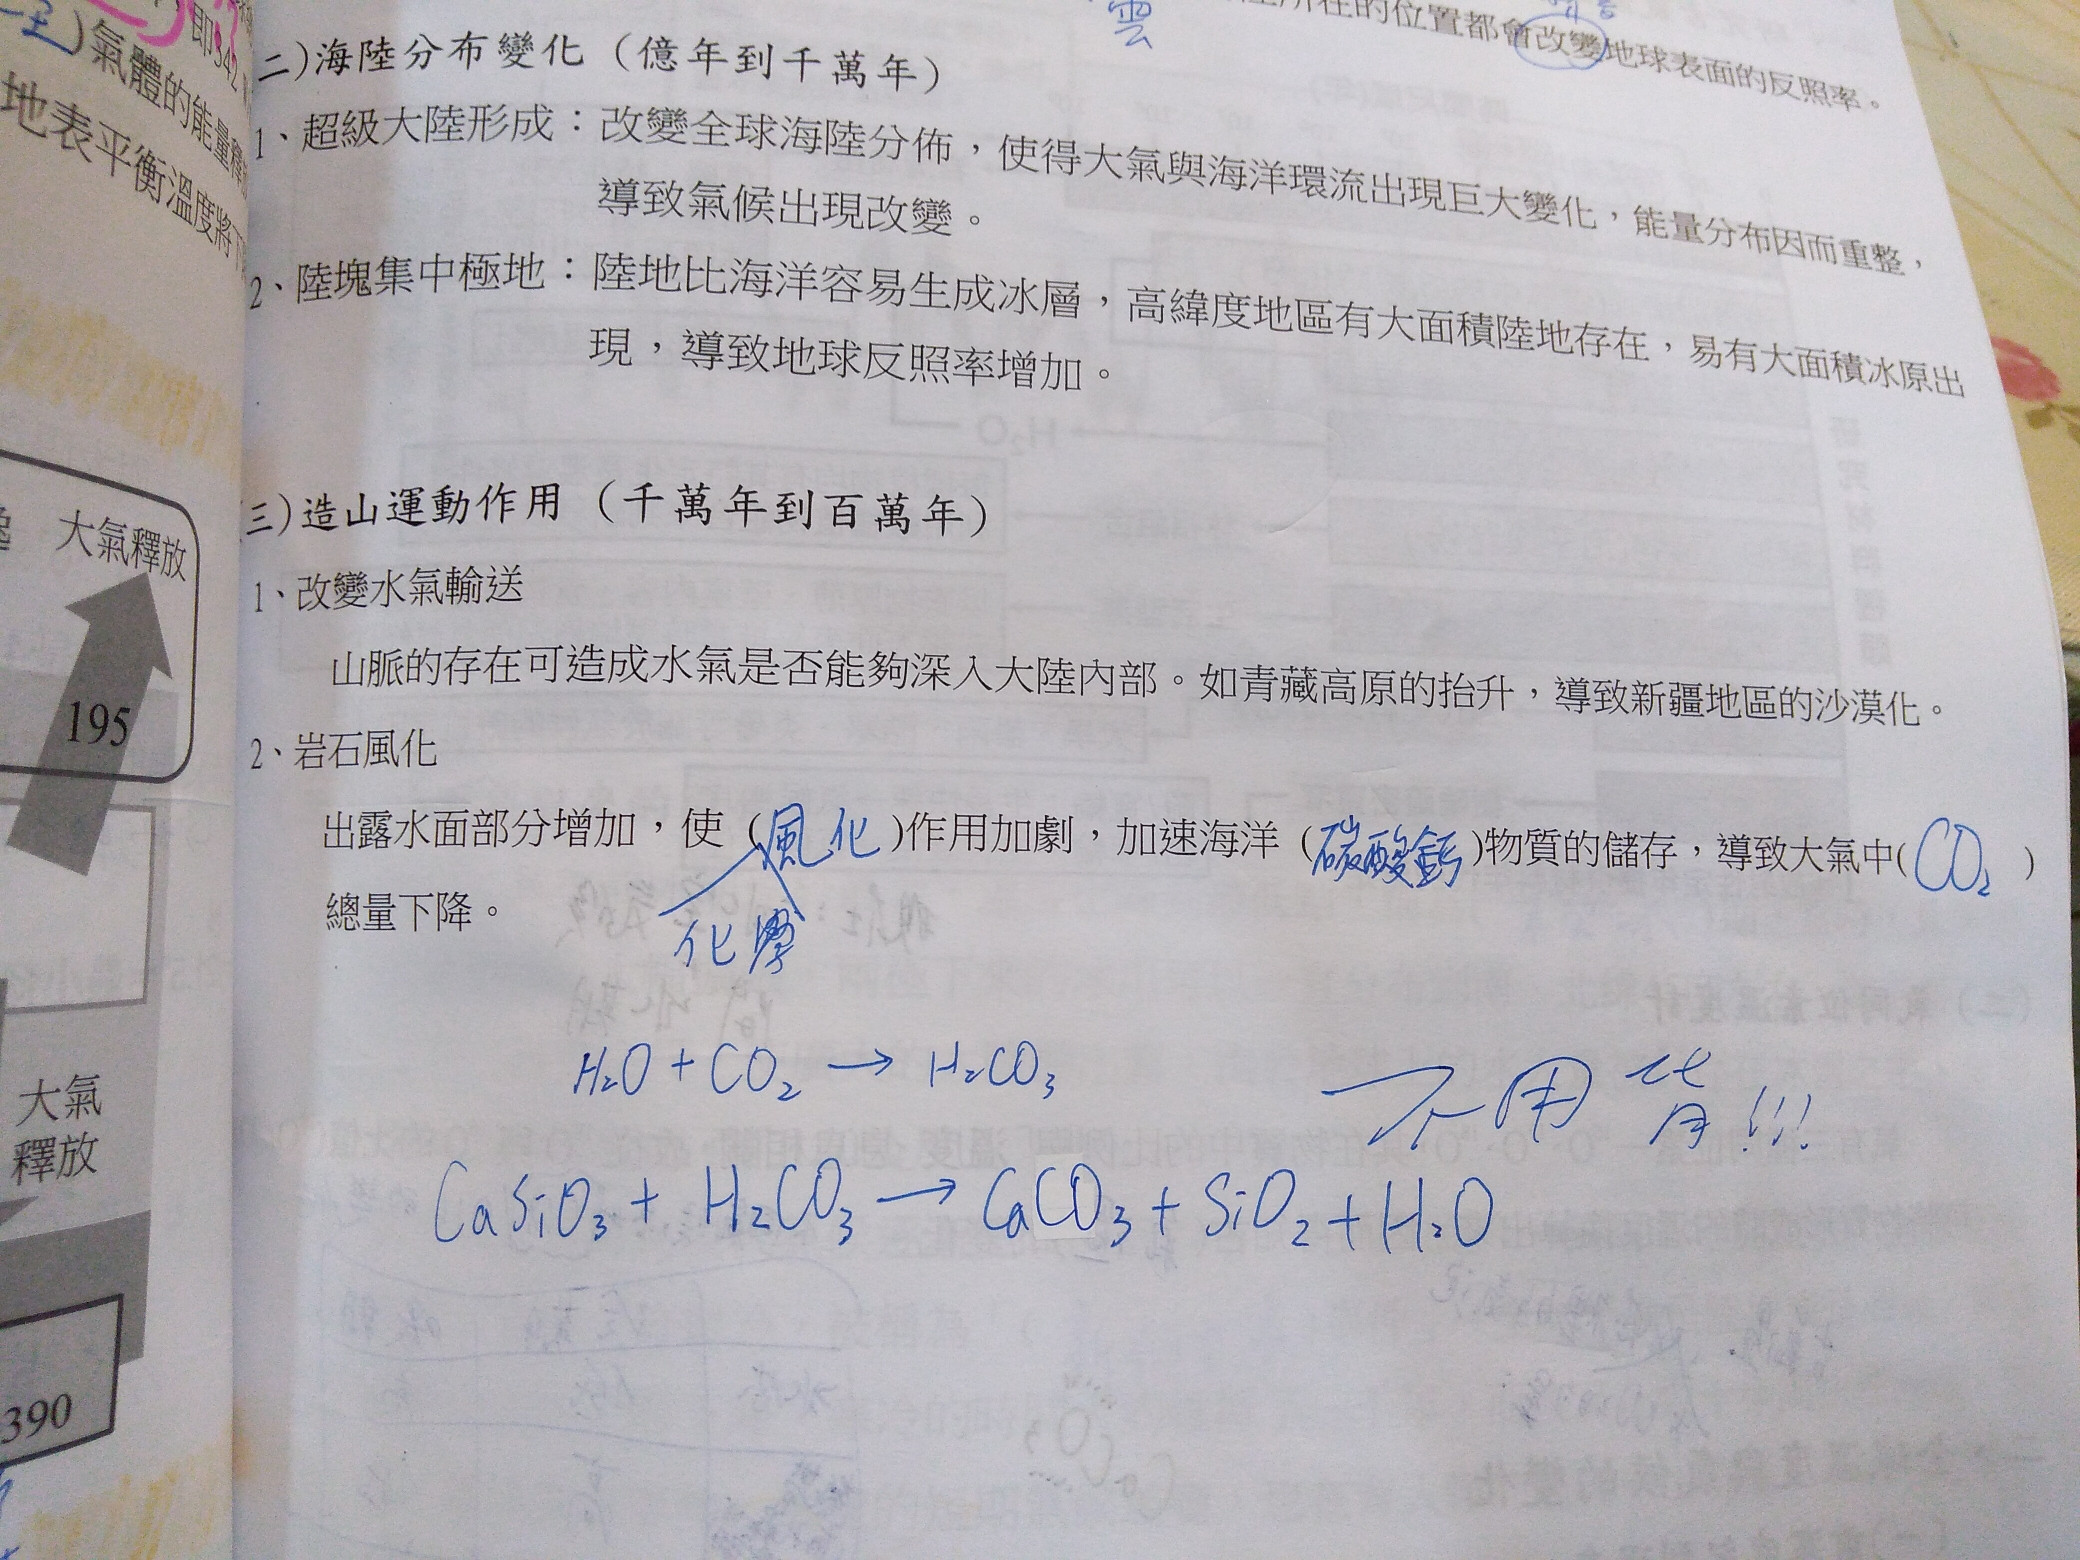 雲
所在的位置都會改變地球表面的反照率。
二)海陸分布變化（億年到千萬年）
1、超級大陸形成：改變全球海陸分佈，使得大氣與海洋環流出現巨大變化，能量分布因而重整，
導致氣候出現改變。
2、陸塊集中極地：陸地比海洋容易生成冰層，高緯度地區有大面積陸地存在，易有大面積冰原出
現，導致地球反照率增加。
三)造山運動作用（千萬年到百萬年）
1、改變水氣輸送
山脈的存在可造成水氣是否能夠深入大陸內部。如青藏高原的抬升，導致新疆地區的沙漠化。
2、岩石風化
出露水面部分增加，使（風化）作用加劇，加速海洋（碳酸鈣）物質的儲存，導致大氣中(CO₂)
總量下降。
化學
H₂O + CO₂ → H₂CO₃
不用背!!!
CaSiO₃ + H₂CO₃ → CaCO₃ + SiO₂ + H₂O
氣體的能量釋
地表平衡溫度將下
大氣釋放
195
大氣
釋放
390